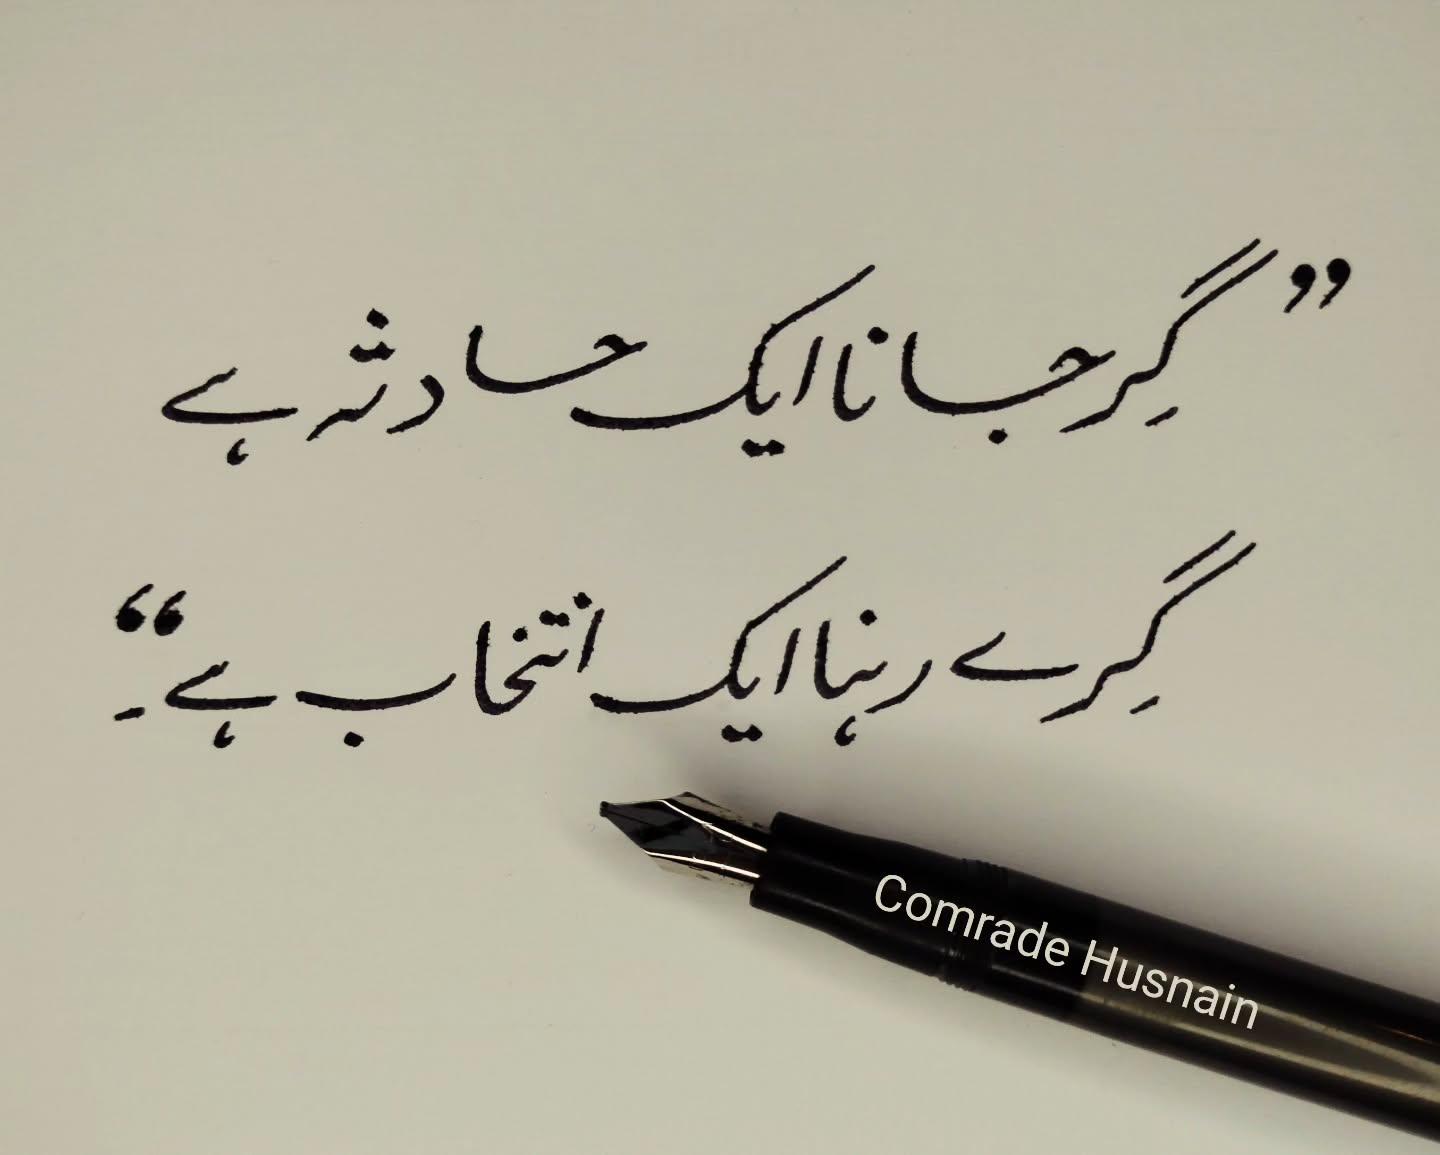 ”گِر جانا ایک حادثہ ہے
گِرے رہنا ایک انتخاب ہے۔“
Comrade Husnain